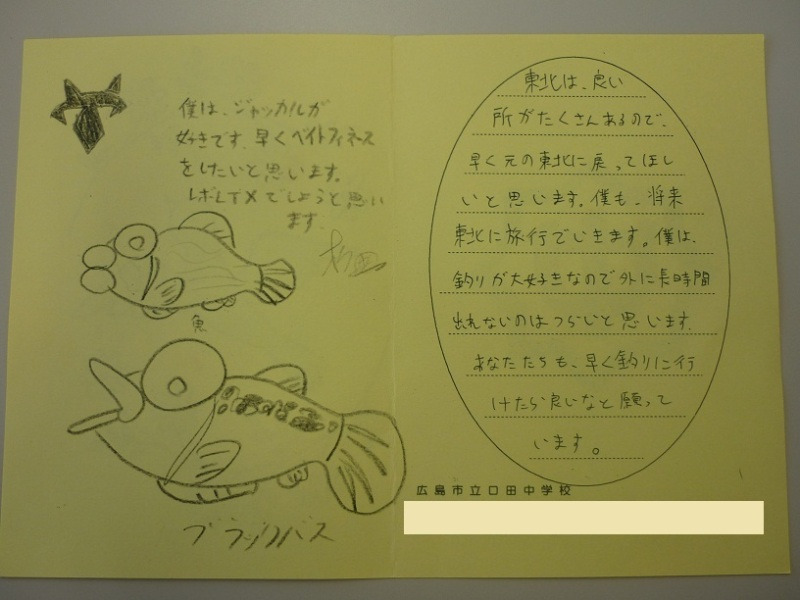 僕は、ジャッカルが
好きです。早くベイトフィネース
をしたいと思います。
レボLTXでしようと思い
ます。
魚
ブラックバス
東北は、良い
所がたくさんあるので、
早く元の東北に戻ってほし
いと思います。僕も、将来
東北に旅行でいきます。僕は、
釣りが大好きなので外に長時間
出れないのはつらいと思います。
あなたたちも、早く釣りに行
けたら良いなと願って
います。
広島市立口田中学校